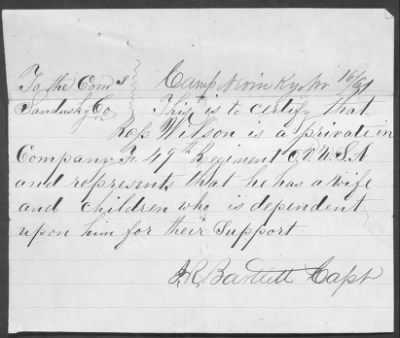 To the Coms
Sandusky Co
Camp Nevin Ky Nov 16/61
This is to certify that
Wilson is a private in
Company F. 49th Regiment O.V.U.S.A
and represents that he has a wife
and children who is dependent
upon him for their Support
J.R. Bartlett Capt